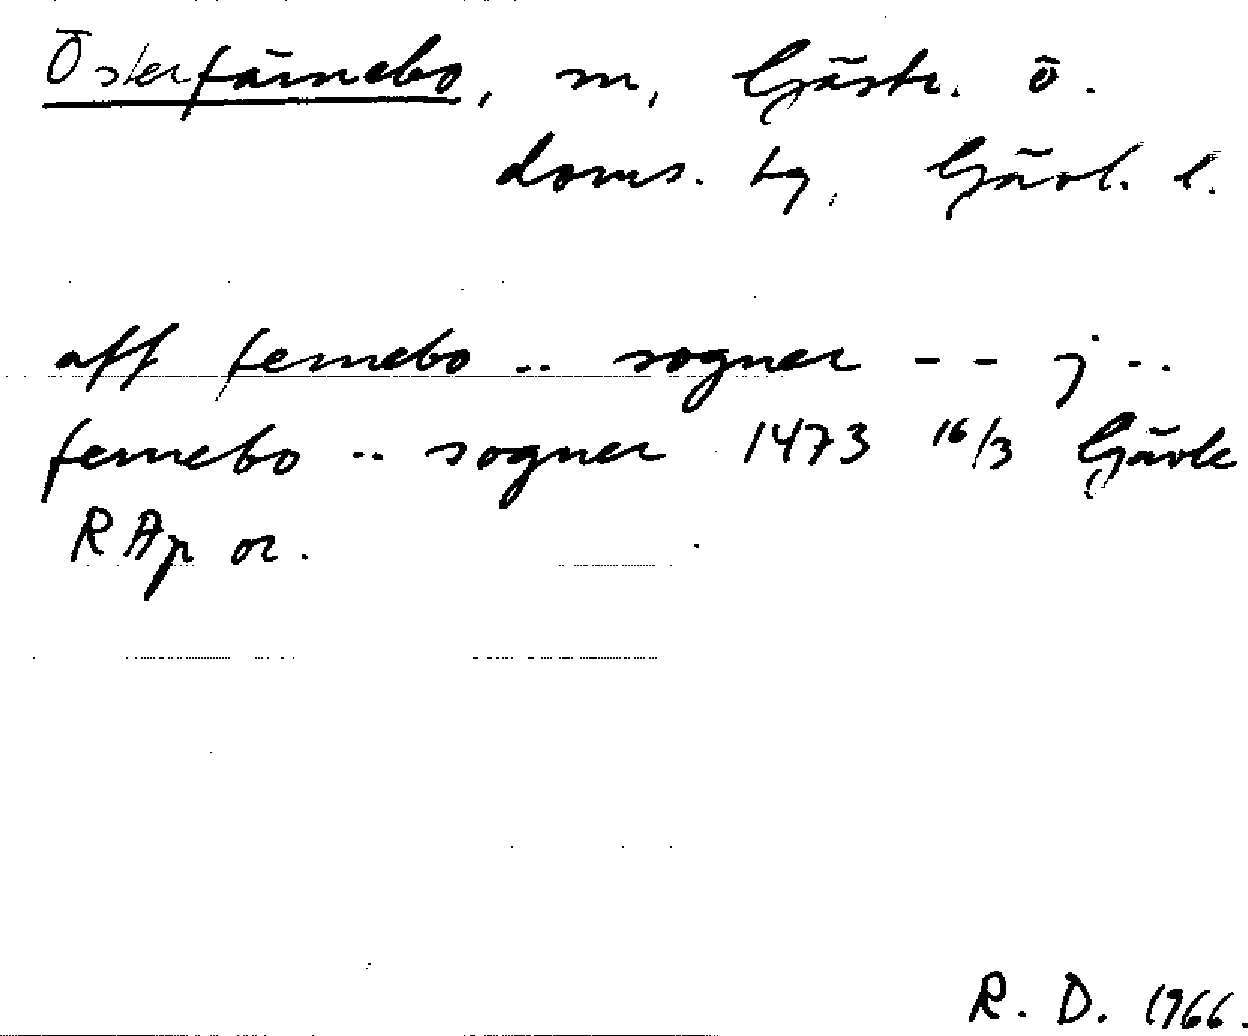 Österfärnebo, sn, Gästr. ö.
doms. tg, Gävl. l.
aff fernebo .. sogner - - j ..
fernebo .. sogner 1473 16/3 Gävle
RAp or.
R. D. 1966.